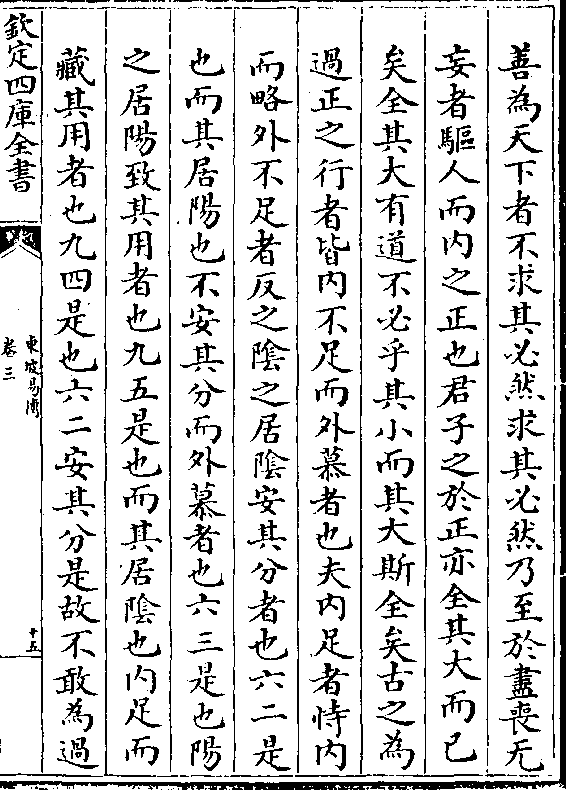 善為天下者不求其必然求其必然乃至於盡喪无
妄者驅人而内之正也君子之於正亦全其大而已
矣全其大有道不必乎其小而其大斯全矣古之為
過正之行者皆内不足而外慕者也夫内足者恃内
而略外不足者反之陰之居陰安其分者也六二是
也而其居陽也不安其分而外慕者也六三是也陽
之居陽致其用者也九五是也而其居陰也内足而
藏其用者也九四是也六二安其分是故不敢為過
欽定四庫全書
東坡易傳
卷三
十五